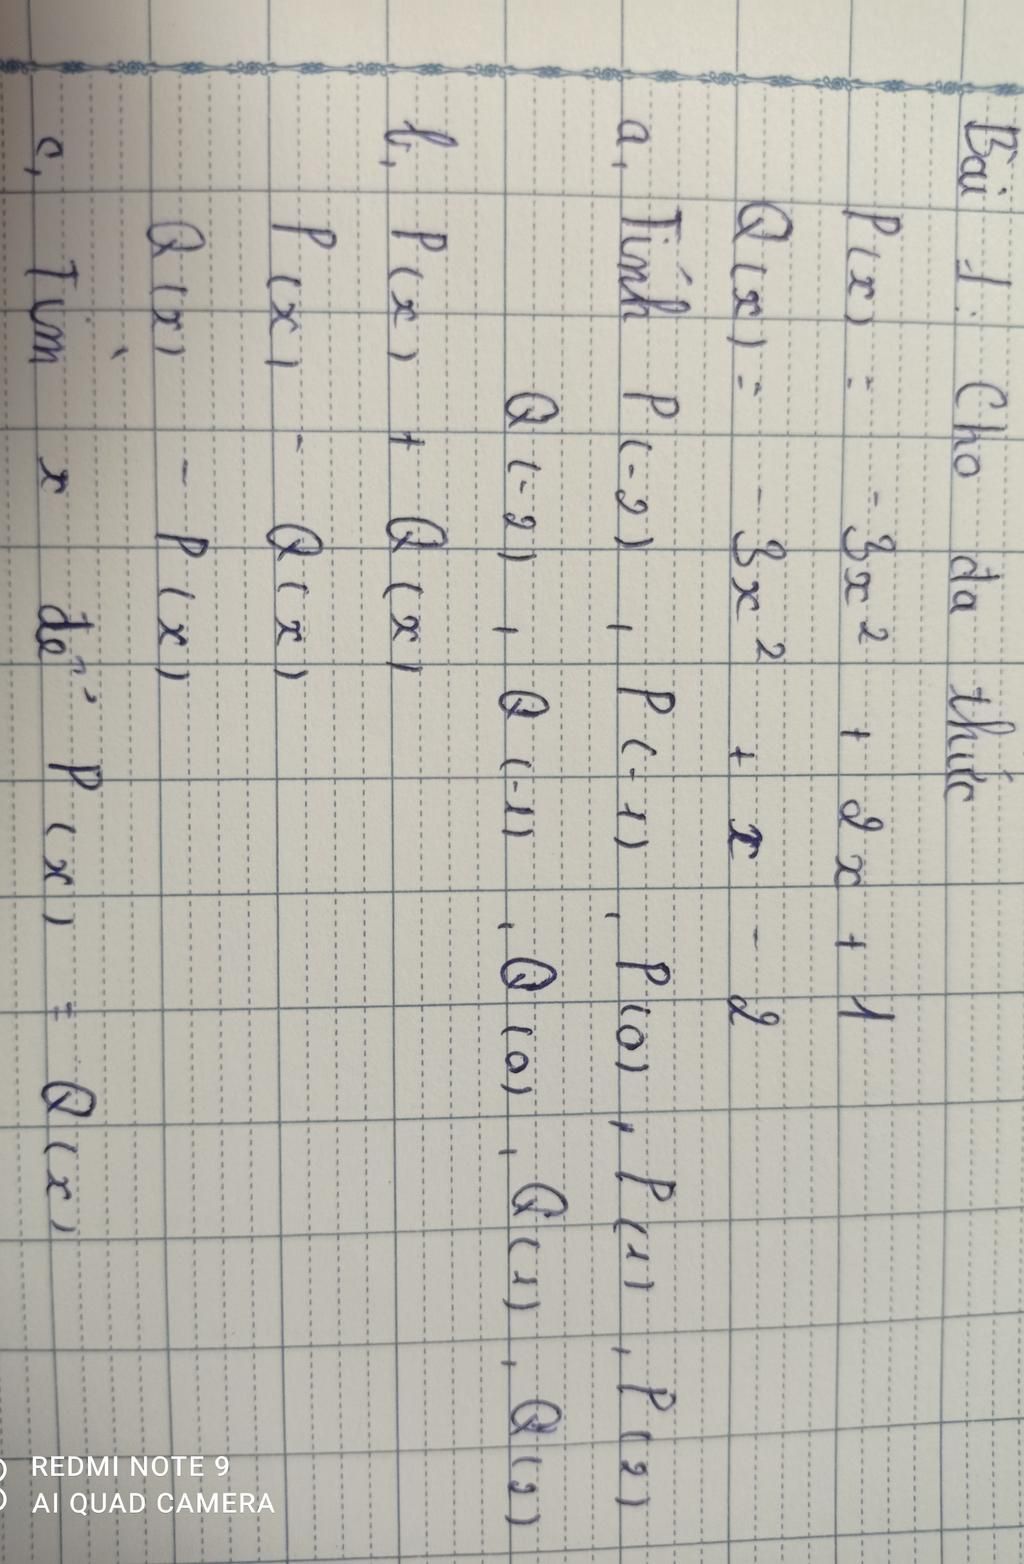 Bài 1: Cho đa thức
P(x) = -3x² + 2x + 1
Q(x) = -3x² + x - 2
a, Tính P(-2), P(-1), P(0), P(1), P(2)
Q(-2), Q(-1), Q(0), Q(1), Q(2)
b, P(x) + Q(x)
P(x) - Q(x)
Q(x) - P(x)
c, Tìm x để P(x) = Q(x)
REDMI NOTE 9
AI QUAD CAMERA